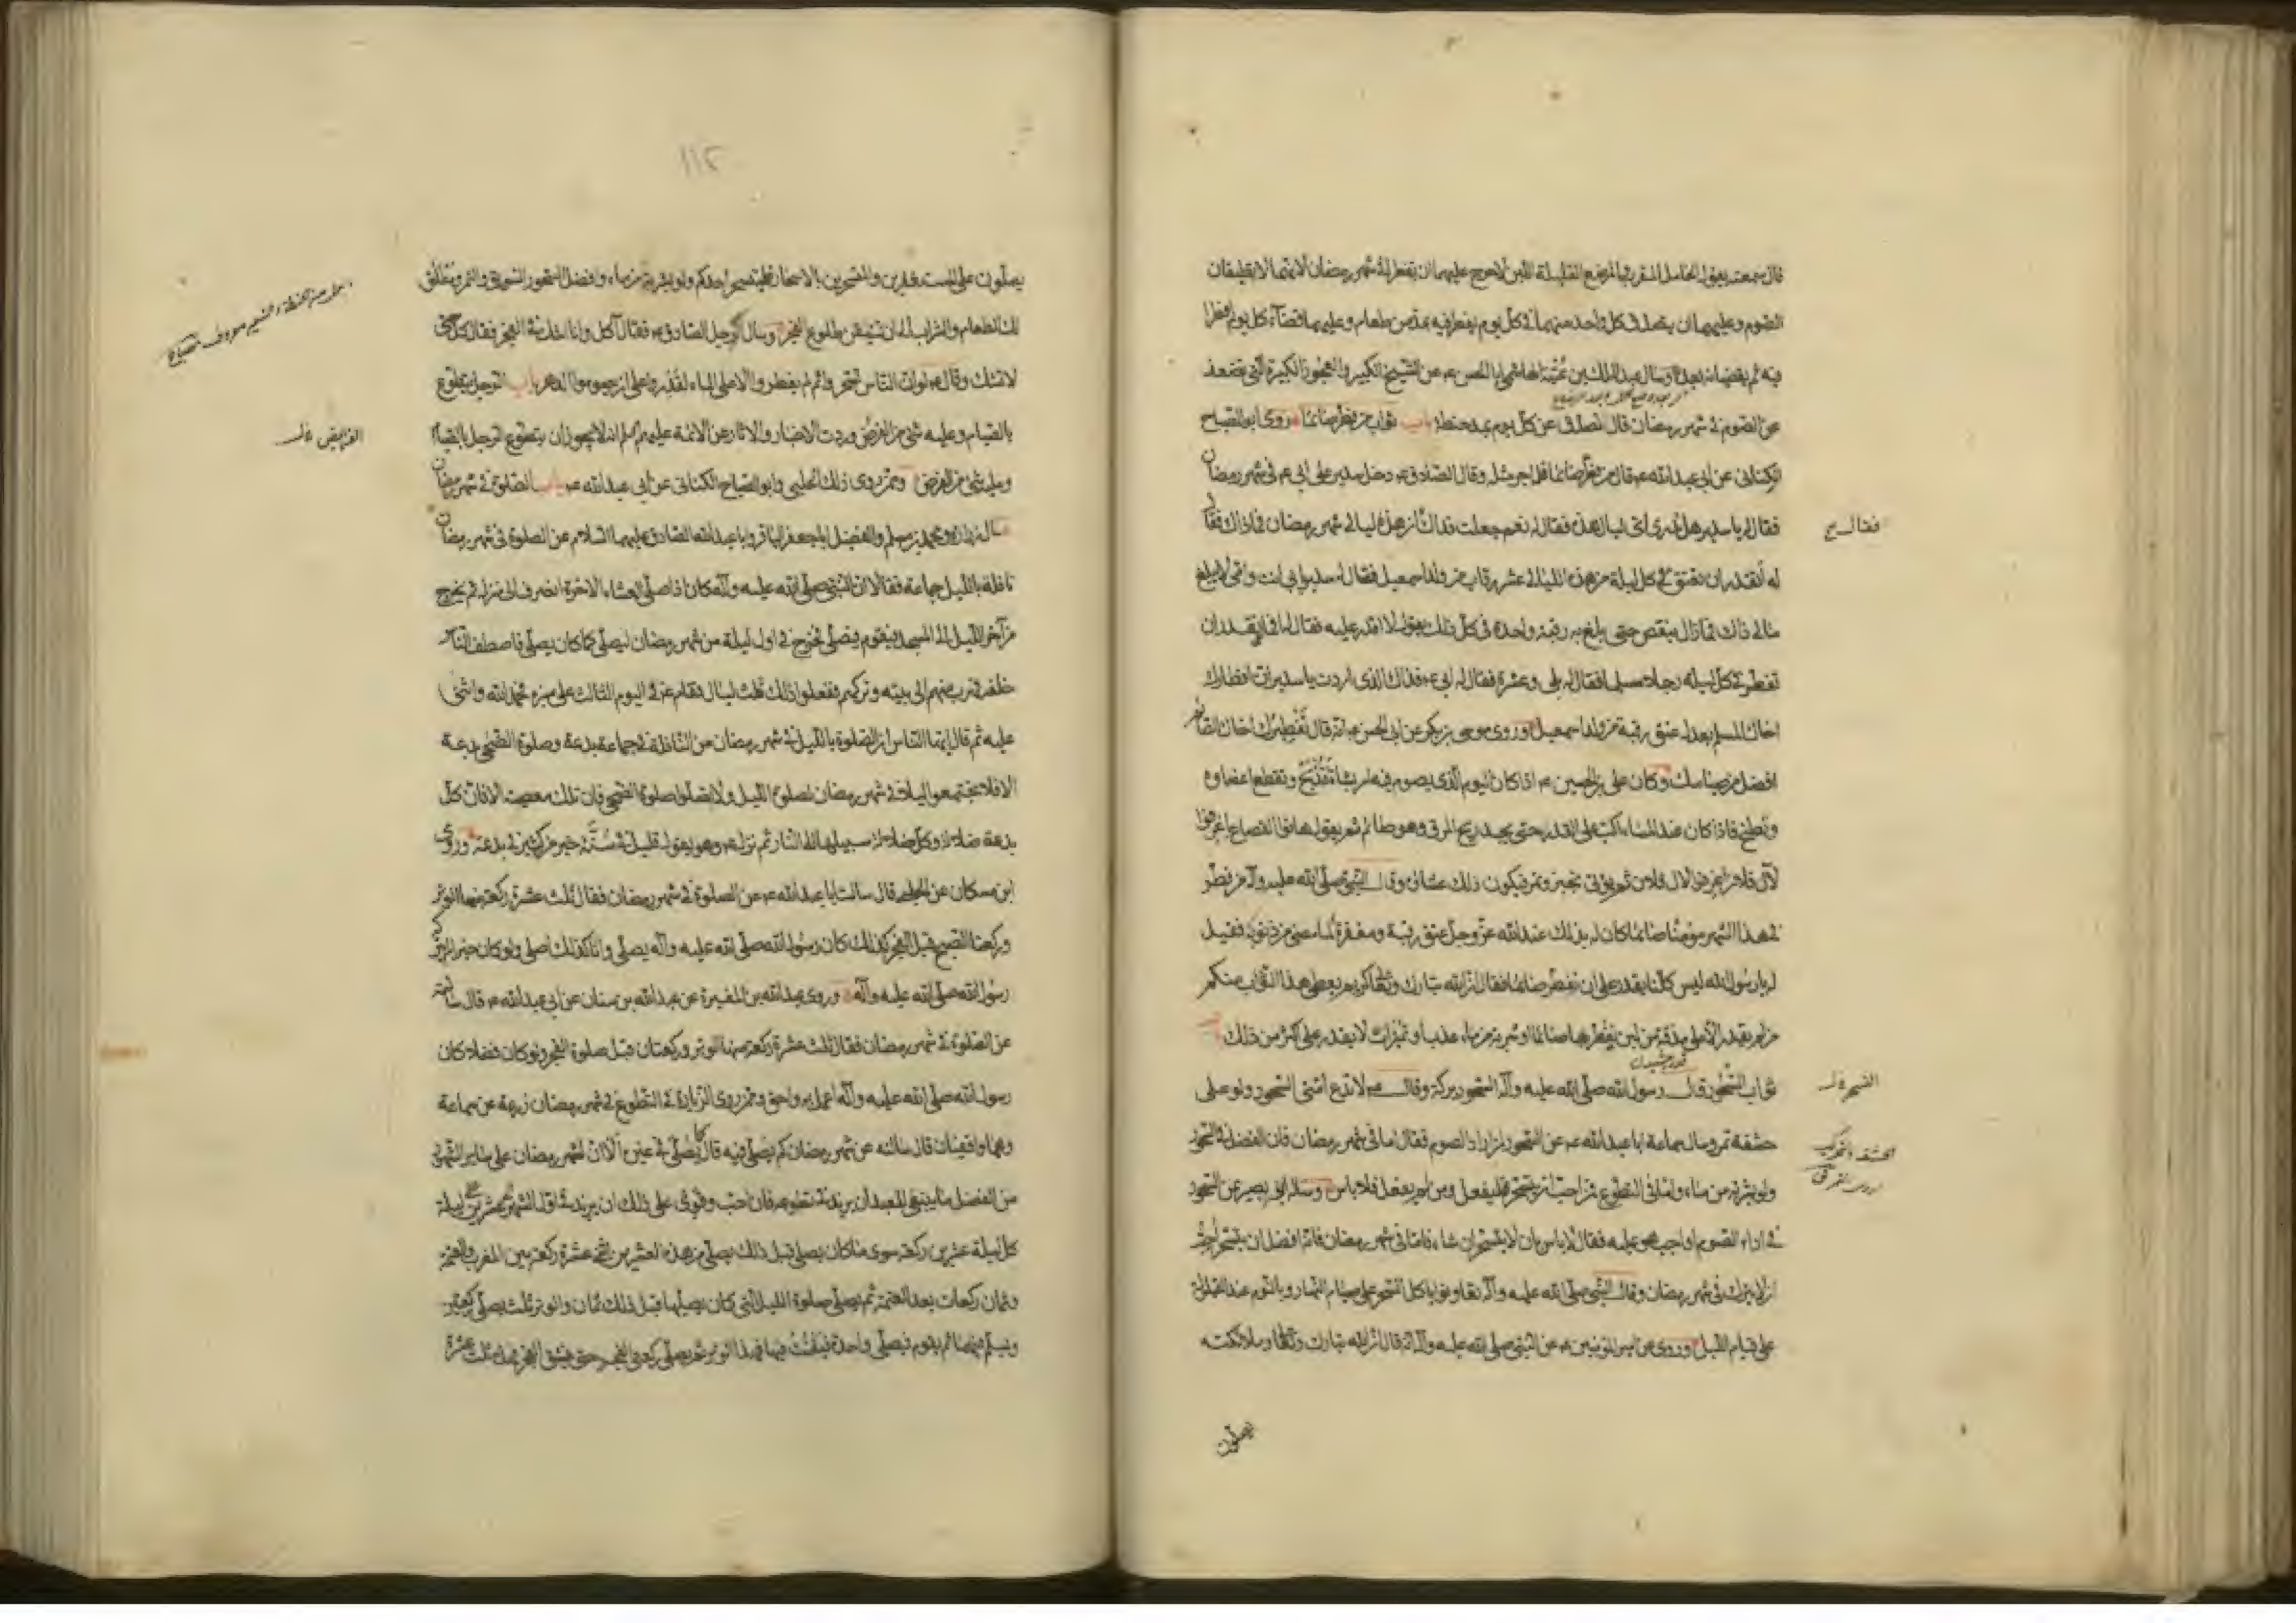 قال سمعته يقول الحامل المقرب والمرضع القليلة اللبن لا حرج عليهما ان تفطرا في شهر رمضان لانهما لا تطيقان
الصوم وعليهما ان يتصدق كل واحدة منهما في كل يوم يفطر فيه بمد من طعام وعليهما قضاء كل يوم افطرا
فيه ثم يقضيانه بعد وسال عبد الملك بن عتبة الهاشمي ابا الحسن ع عن الشيخ الكبير والعجوز الكبيرة التي تضعف
عن الصوم في شهر رمضان قال تصدق عن كل يوم بمد حنطة باب ثواب من فطر صائما روى ابو الصباح
الكناني عن ابي عبد الله ع قال من فطر صائما فله اجر مثله وقال الصادق ع دخل سدير على ابي ع في شهر رمضان
فقال له يا سدير هل تدري اي ليال هذه فقال له نعم جعلت فداك ان هذه ليالي شهر رمضان فما ذاك فقال
له أتقدر ان تعتق في كل ليلة من هذه الليالي عشر رقاب من ولد اسمعيل فقال له سدير بابي انت وامي لا يبلغ
مالي ذاك فما زال ينقص حتى بلغ به رقبة واحدة في كل ذلك يقول لا اقدر عليه فقال له افما تقدر ان
تفطر في كل ليلة رجلا مسلما فقال له بلى وعشرة فقال له ابي ع فذاك الذي اردت يا سدير ان افطارك
اخاك المسلم يعدل عتق رقبة من ولد اسمعيل وروى موسى بن بكر عن ابي الحسن ع انه قال تفطيرك اخاك الصائم
افضل من صيامك وكان علي بن الحسين ع اذا كان اليوم الذي يصوم فيه امر بشاة فتذبح وتقطع اعضاء
وتطبخ فاذا كان عند المساء اكب على القدور حتى يجد ريح المرق وهو صائم ثم يقول هاتوا القصاع اغرفوا
لآل فلان اغرفوا لآل فلان ثم يؤتى بخبز وتمر فيكون ذلك عشاؤه وقال النبي صلى الله عليه وآله من فطر
في هذا الشهر مؤمنا صائما كان له بذلك عند الله عز وجل عتق رقبة ومغفرة لما مضى من ذنوبه فقيل
له يا رسول الله ليس كلنا يقدر على ان نفطر صائما فقال ان الله تبارك وتعالى كريم يعطي هذا الثواب منكم
من لم يقدر الا على مذقة من لبن يفطر بها صائما او شربة من ماء عذب او تميرات لا يقدر على اكثر من ذلك باب
ثواب السحور قال رسول الله صلى الله عليه وآله السحور بركة وقال ع لا تدع امتي السحور ولو على
حشفة تمر وسال سماعة ابا عبد الله ع عن السحور لمن اراد الصوم فقال اما في شهر رمضان فان الفضل في السحور
ولو بشربة من ماء واما في التطوع فمن احب ان يتسحر فليفعل ومن لم يفعل فلا باس وساله ابو بصير عن السحور
في اداء الصوم اواجب هو عليه فقال لا باس بان لا يتسحر ان شاء فاما في شهر رمضان فانه افضل ان يتسحر نحب
ان لا يترك في شهر رمضان وقال النبي صلى الله عليه وآله تعاونوا باكل السحور على صيام النهار وبالنوم عند القيلولة
على قيام الليل وروي عن امير المؤمنين ع عن النبي صلى الله عليه وآله انه قال ان الله تبارك وتعالى وملائكته
يصلون
١١٢
يصلون على المستغفرين والمتسحرين بالاسحار فليتسحر احدكم ولو بشربة من ماء وافضل السحور السويق والتمر ومطلق
لك الطعام والشراب الى ان تستيقن طلوع الفجر وسال رجل الصادق ع فقال آكل وانا اشك في الفجر فقال كل حتى
لا تشك وقال ع لو ان الناس تسحروا ثم لم يفطروا الا على الماء لقدروا على ان يصوموا الدهر باب الرجل يتطوع
بالصيام وعليه شيء من الفرض وردت الاخبار والاثار عن الائمة عليهم السلم انه لا يجوز ان يتطوع الرجل بالصيام
وعليه شيء من الفرض وممن روى ذلك الحلبي وابو الصباح الكناني عن ابي عبد الله ع باب الصلوة في شهر رمضان
سال زرارة ومحمد بن مسلم والفضيل ابا جعفر الباقر وابا عبد الله الصادق عليهما السلام عن الصلوة في شهر رمضان
نافلة بالليل جماعة فقالا ان النبي صلى الله عليه وآله كان اذا صلى العشاء الاخرة انصرف الى منزله ثم يخرج
من آخر الليل الى المسجد فيقوم فيصلي فخرج في اول ليلة من شهر رمضان ليصلي كما كان يصلي فاصطف الناس
خلفه فهرب منهم الى بيته وتركهم ففعلوا ذلك ثلث ليال فقام ع في اليوم الثالث على منبره فحمد الله واثنى
عليه ثم قال ايها الناس ان الصلوة بالليل في شهر رمضان من النافلة في جماعة بدعة وصلوة الضحى بدعة
الا فلا تجتمعوا ليلا في شهر رمضان لصلوة الليل ولا تصلوا صلوة الضحى فان تلك معصية الا فان كل
بدعة ضلالة وكل ضلالة سبيلها الى النار ثم نزل ع وهو يقول قليل في سنة خير من كثير في بدعة وروى
ابن مسكان عن الحلبي قال سالت ابا عبد الله ع عن الصلوة في شهر رمضان فقال ثلث عشرة ركعة منها الوتر
وركعتا الصبح قبل الفجر كذلك كان رسول الله صلى الله عليه وآله يصلي وانا كذلك اصلي ولو كان خيرا لم يتركه
رسول الله صلى الله عليه وآله وروى عبد الله بن المغيرة عن عبد الله بن سنان عن ابي عبد الله ع قال سالته
عن الصلوة في شهر رمضان فقال ثلث عشرة ركعة منها الوتر وركعتان قبل صلوة الفجر ولو كان فضلا كان
رسول الله صلى الله عليه وآله اعمل به واحق وممن روى الزيادة في التطوع في شهر رمضان زرعة عن سماعة
وهما واقفيان قال سالته عن شهر رمضان كم يصلى فيه قال كما يصلى في غيره الا ان لشهر رمضان على سائر الشهور
من الفضل ما ينبغي للعبد ان يزيد في تطوعه فان احب وقوي على ذلك ان يزيد في اول الشهر عشرين ليلة
كل ليلة عشرين ركعة سوى ما كان يصلي قبل ذلك يصلي من هذه العشرين اثنتي عشرة ركعة بين المغرب والعتمة
وثمان ركعات بعد العتمة ثم يصلي صلوة الليل التي كان يصليها قبل ذلك ثمان والوتر ثلث يصلي ركعتين
ويسلم فيهما ثم يقوم فيصلي واحدة فيقنت فيها فهذا الوتر ثم يصلي ركعتي الفجر حتى ينشق الفجر فهذه ثلث عشرة